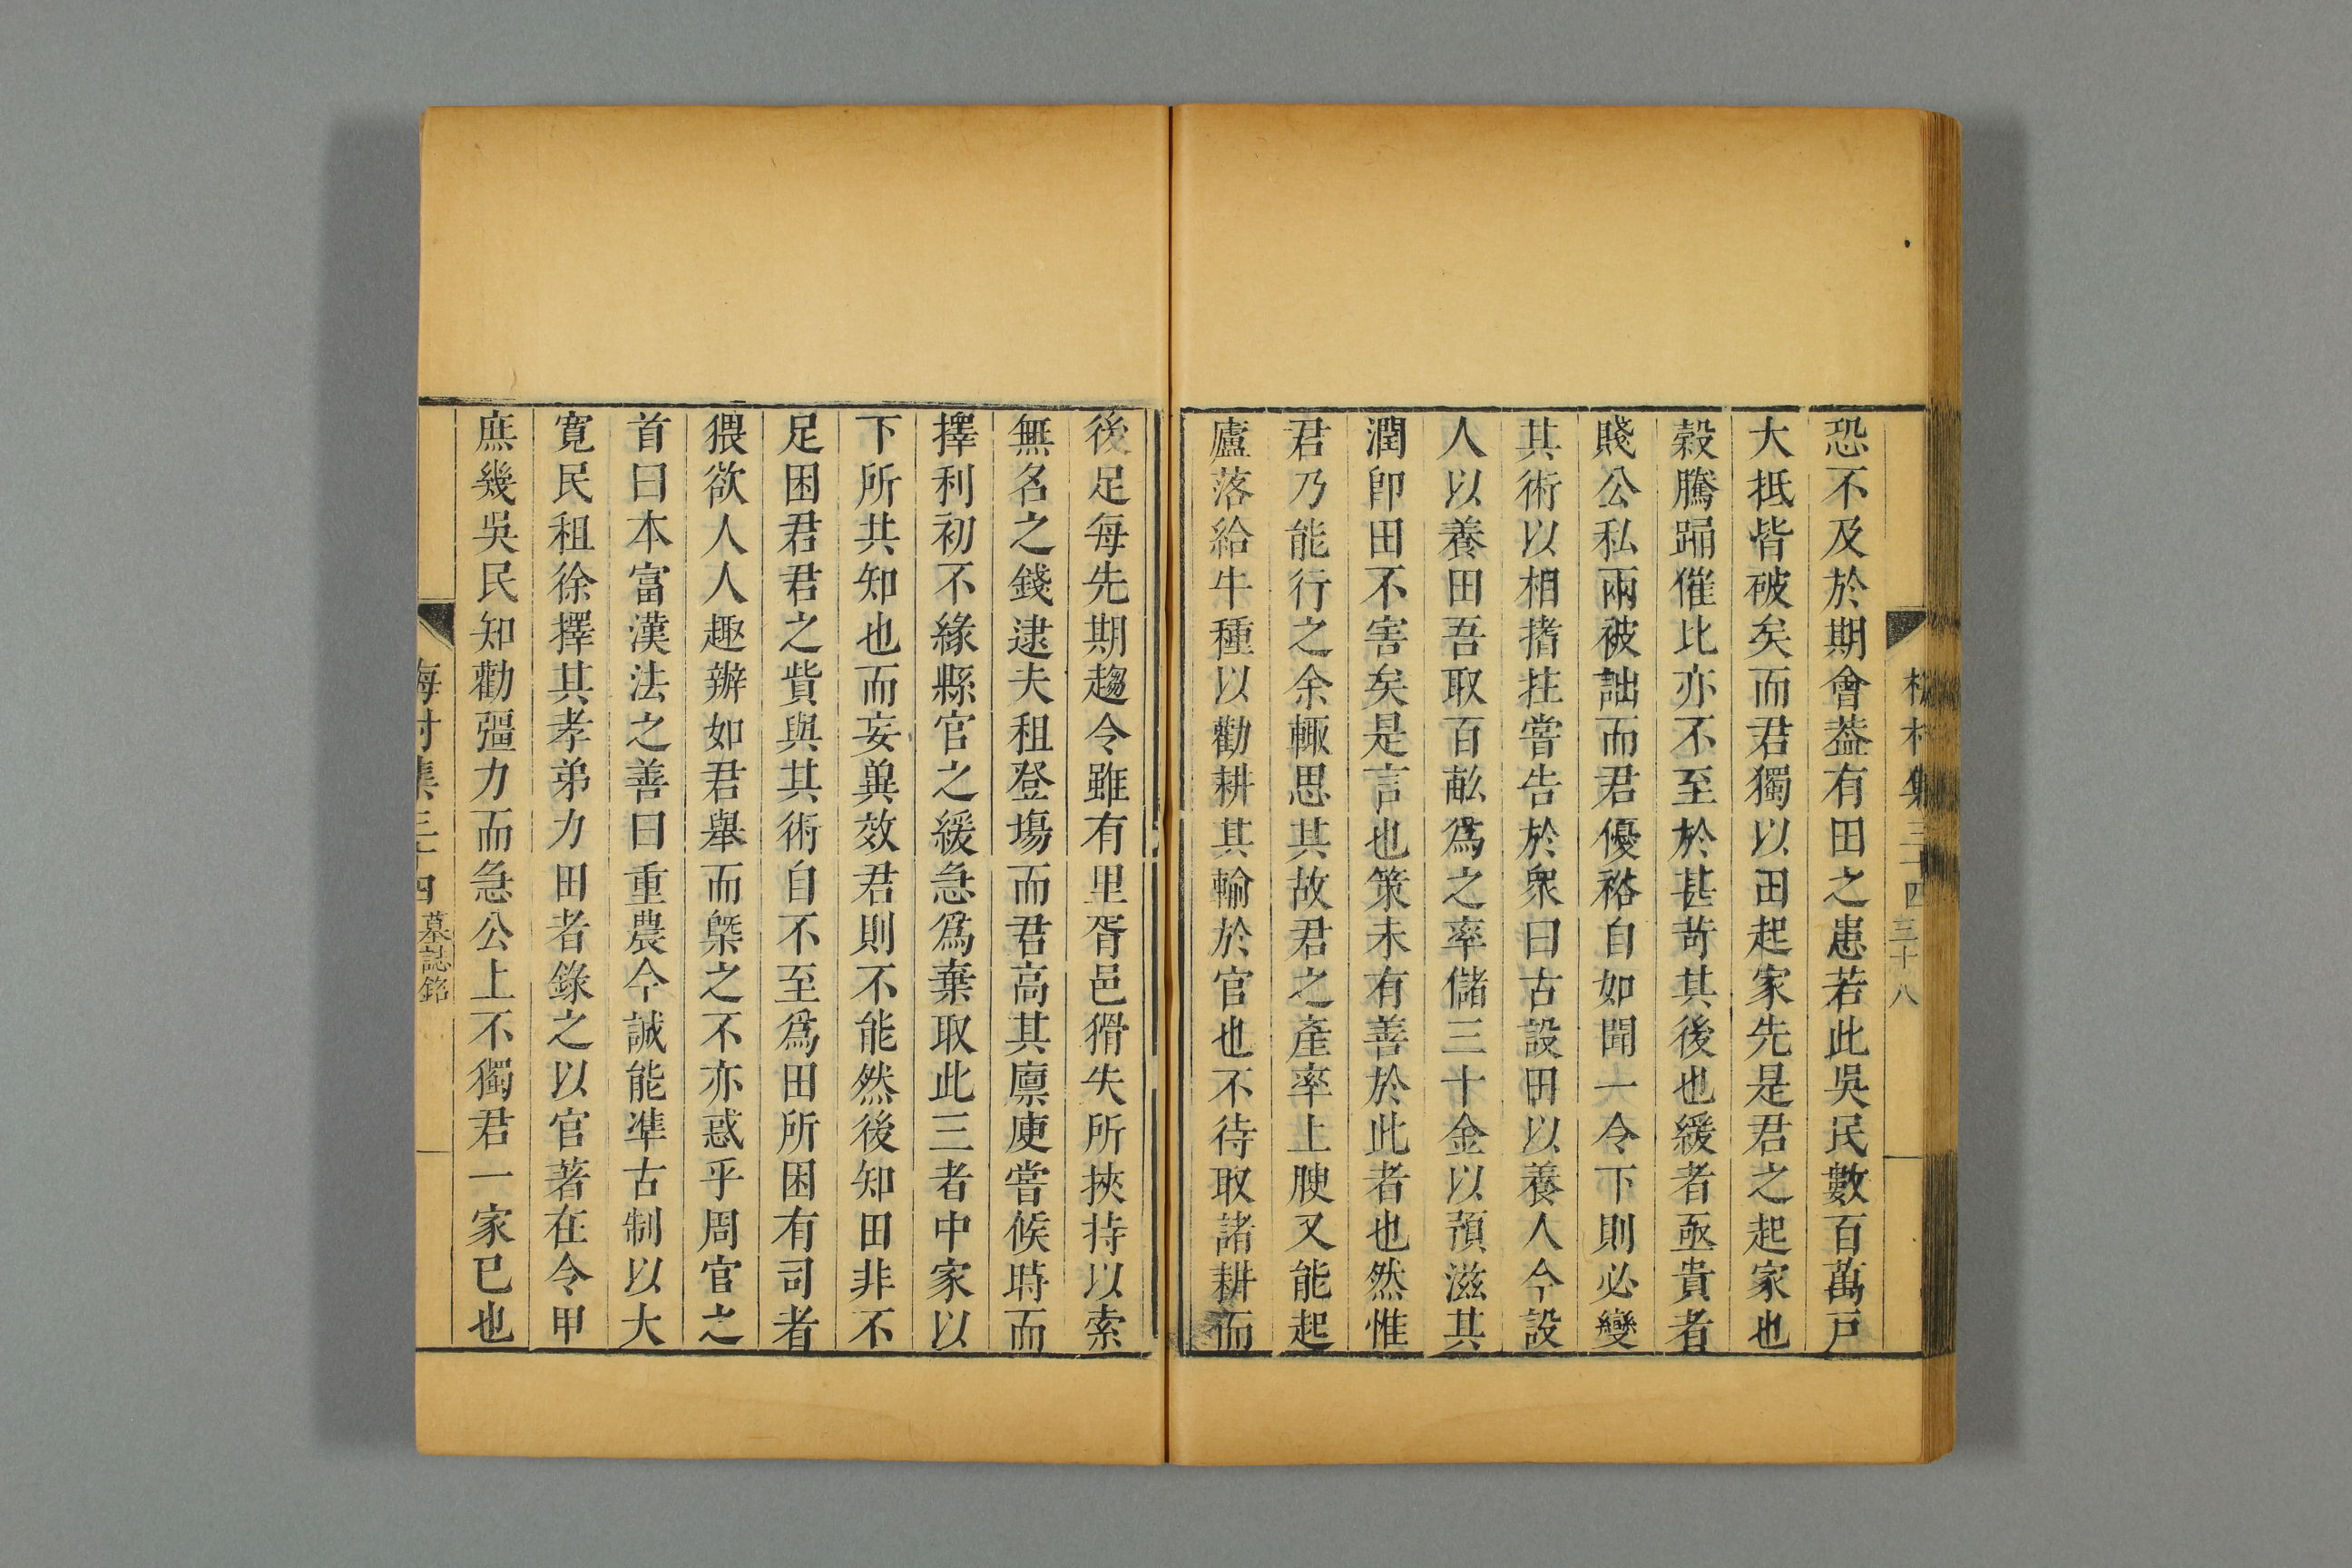 恐不及於期會葢有田之患若此吳民數百萬戸
大抵皆破矣而君獨以田起家先是君之起家也
穀騰踊催比亦不至於甚苛其後也緩者亟貴者
賤公私兩被詘而君優裕自如聞一令下則必變
其術以相搘拄嘗告於衆曰古設田以養人今設
人以養田吾取百畝爲之率儲三十金以預滋其
潤卽田不害矣是言也策未有善於此者也然惟
君乃能行之余輒思其故君之產率上腴又能起
廬落給牛種以勸耕其輸於官也不待取諸耕而
後足每先期趨令雖有里胥邑猾失所挾持以索
無名之錢逮夫租登塲而君高其廩庾嘗候時而
擇利初不緣縣官之緩急爲棄取此三者中家以
下所共知也而妄異效君則不能然後知田非不
足困君君之貲與其術自不至爲田所困有司者
猥欲人人趣辦如君舉而槩之不亦惑乎周官之
首曰本富漢法之善曰重農今誠能準古制以大
寬民租徐擇其孝弟力田者錄之以官著在令甲
庶幾吳民知勸彊力而急公上不獨君一家已也
梅村集三十四 墓誌銘